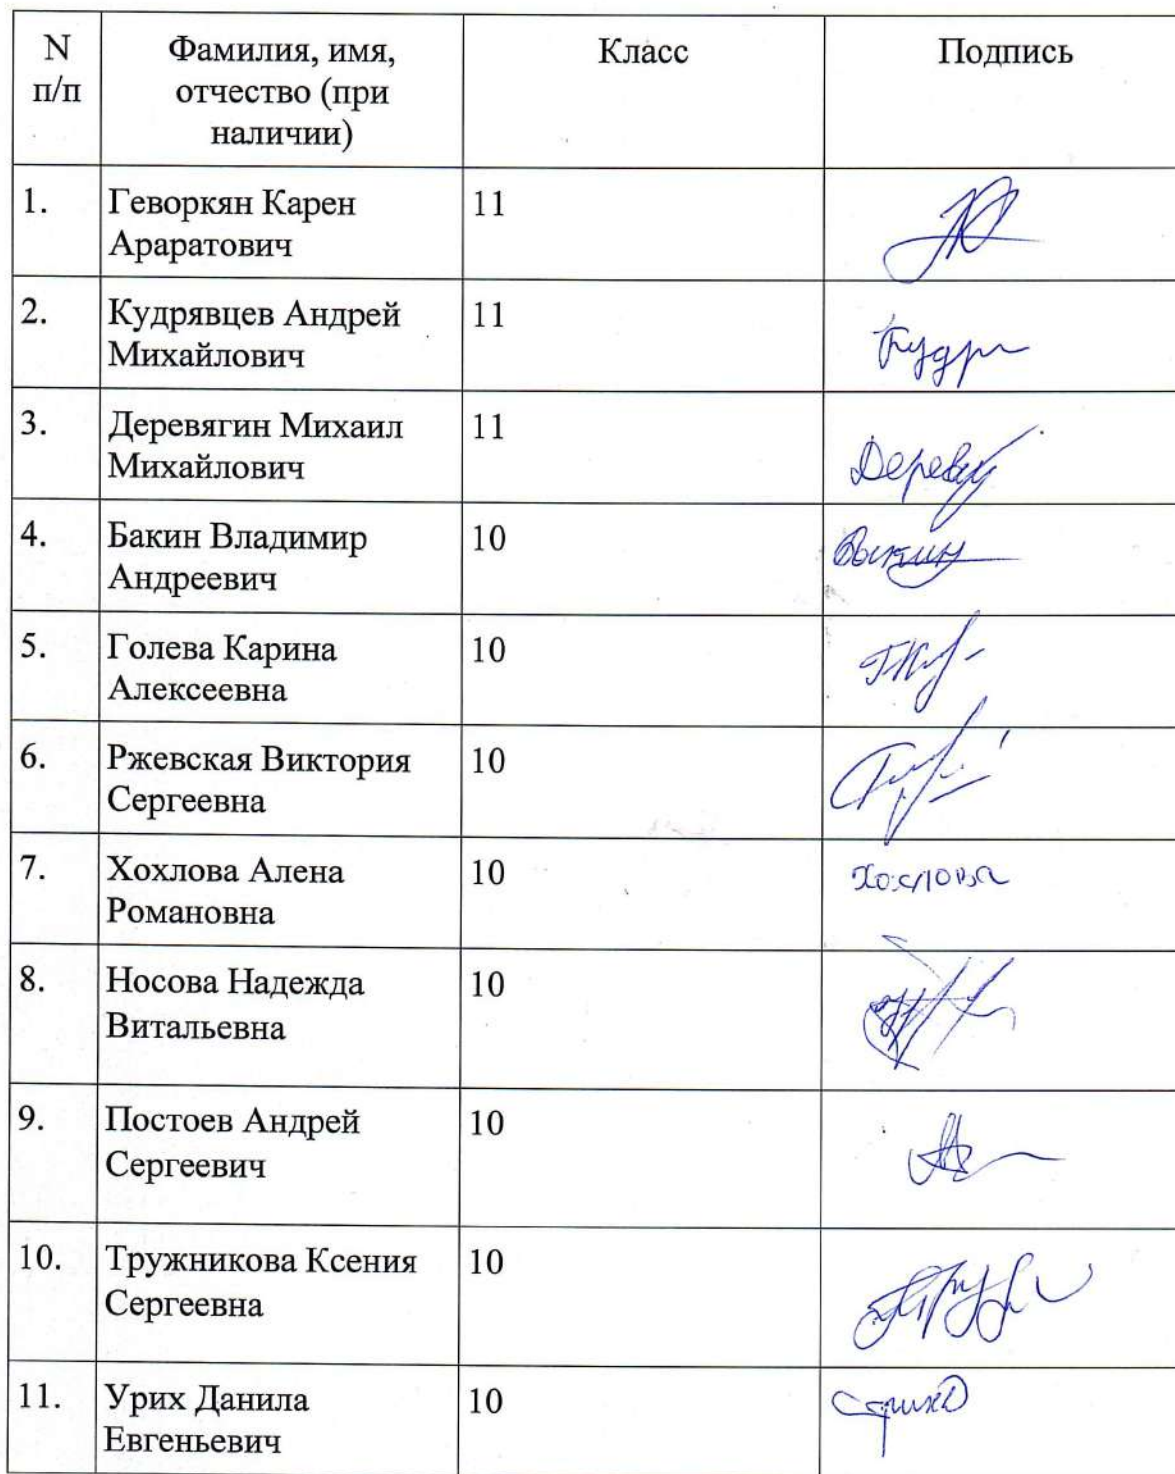 N п/п
Фамилия, имя, отчество (при наличии)
Класс
Подпись
1.
Геворкян Карен
Араратович
11
2.
Кудрявцев Андрей
Михайлович
11
Кудря
3.
Деревягин Михаил
Михайлович
11
Деревяг
4.
Бакин Владимир
Андреевич
10
Бакин
5.
Голева Карина
Алексеевна
10
6.
Ржевская Виктория
Сергеевна
10
7.
Хохлова Алена
Романовна
10
Хохлова
8.
Носова Надежда
Витальевна
10
9.
Постоев Андрей
Сергеевич
10
10.
Тружникова Ксения
Сергеевна
10
11.
Урих Данила
Евгеньевич
10